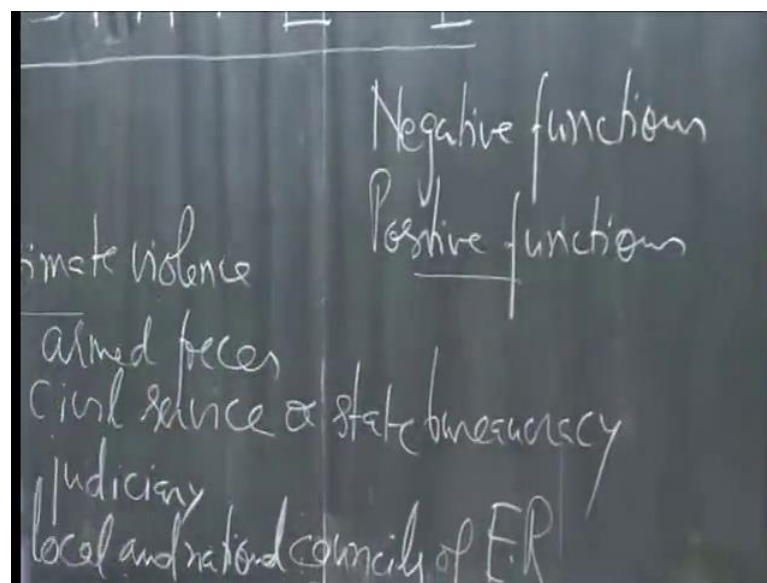 Negative functions
Positive functions
imate violence
armed forces
Civil service or state bureaucracy
judiciary
local and national councils of E.R